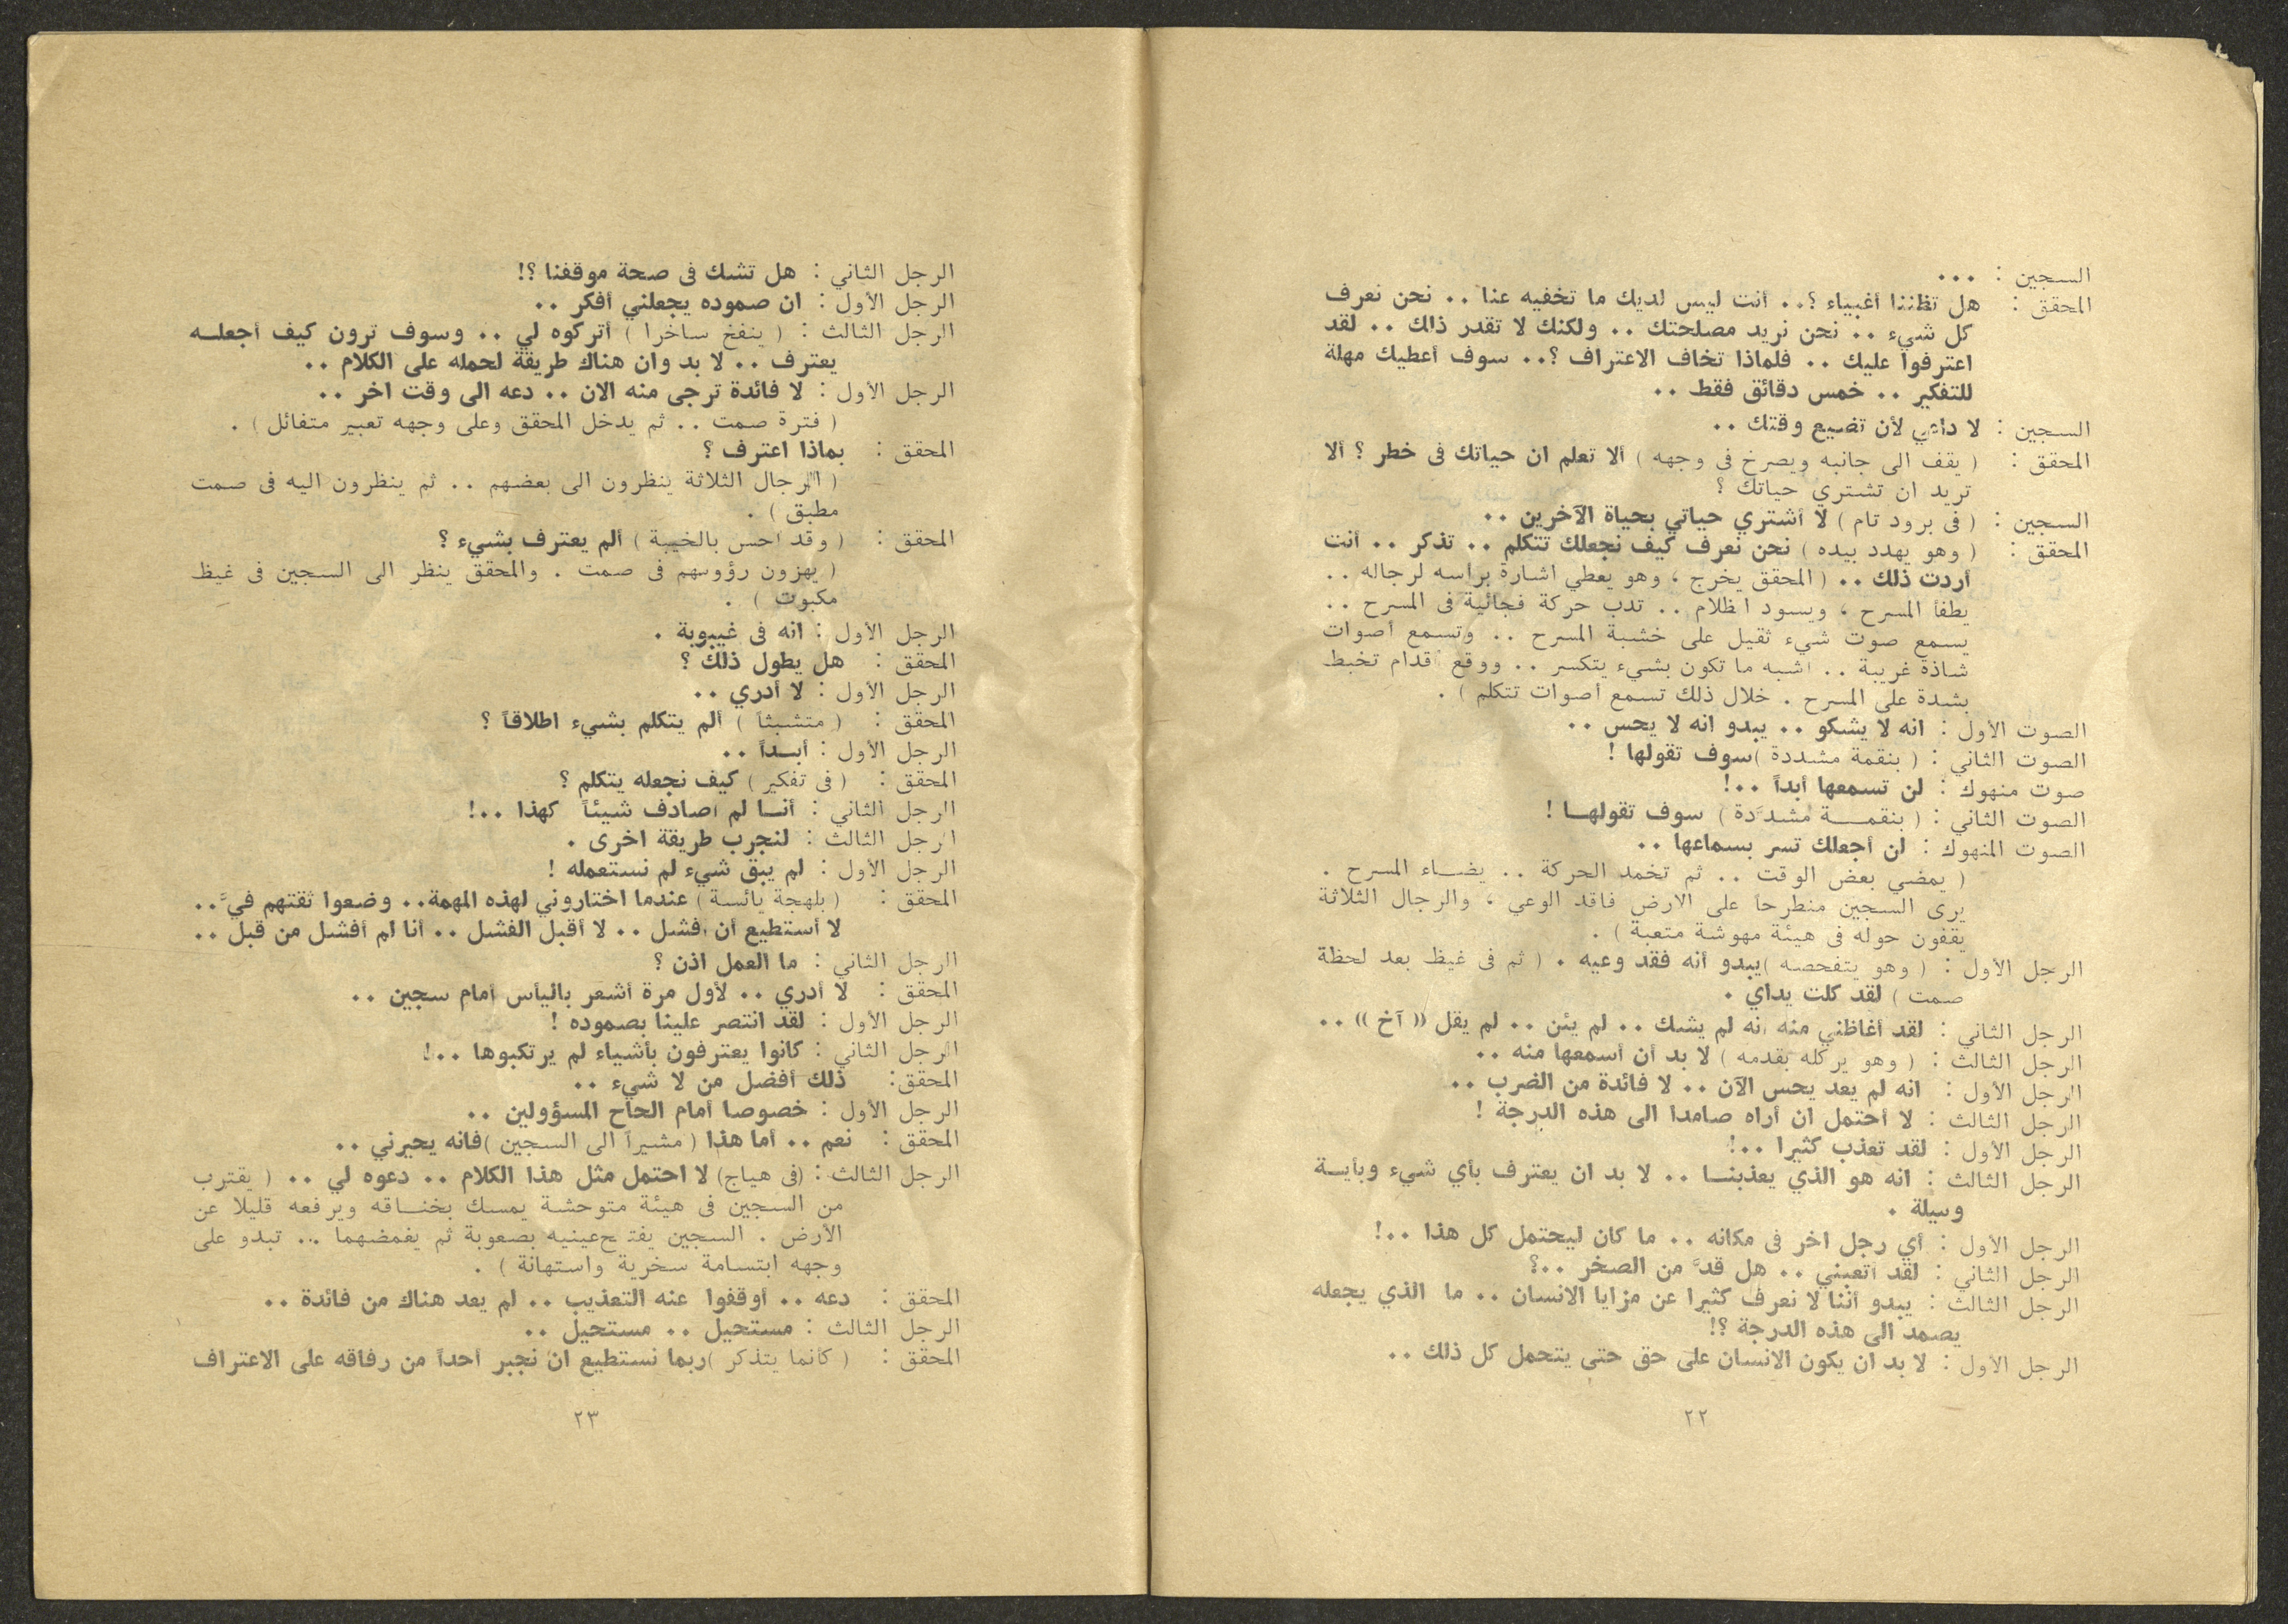 السجين : ...
المحقق : هل تظننا أغبياء ؟.. أنت ليس لديك ما تخفيه عنا .. نحن نعرف
كل شيء .. نحن نريد مصلحتك .. ولكنك لا تقدر ذلك .. لقد
اعترفوا عليك .. فلماذا تخاف الاعتراف ؟.. سوف أعطيك مهلة
للتفكير .. خمس دقائق فقط ..
السجين : لا داعي لأن تضيع وقتك ..
المحقق : ( يقف الى جانبه ويصرخ فى وجهه ) ألا تعلم ان حياتك فى خطر ؟ ألا
تريد ان تشتري حياتك ؟
السجين : ( فى برود تام ) لا أشتري حياتي بحياة الآخرين ..
المحقق : ( وهو يهدد بيده ) نحن نعرف كيف نجعلك تتكلم .. تذكر .. أنت
أردت ذلك .. ( المحقق يخرج ، وهو يعطي اشارة برأسه لرجاله ..
يطفأ المسرح ، ويسود الظلام .. تدب حركة فجائية فى المسرح ..
يسمع صوت شيء ثقيل على خشبة المسرح .. وتسمع أصوات
شاذة غريبة .. اشبه ما تكون بشيء يتكسر .. ووقع أقدام تخبط
بشدة على المسرح . خلال ذلك تسمع أصوات تتكلم ) .
الصوت الأول : انه لا يشكو .. يبدو انه لا يحس ..
الصوت الثاني : ( بنقمة مشددة )سوف تقولها !
صوت منهوك : لن تسمعها أبداً ..!
الصوت الثاني : ( بنقمـــة مشدَّدة ) سوف تقولهـا !
الصوت المنهوك : لن أجعلك تسر بسماعها ..
( يمضي بعض الوقت .. ثم تخمد الحركة .. يضـاء المسرح .
يرى السجين منطرحاً على الارض فاقد الوعي ، والرجال الثلاثة
يقفون حوله فى هيئة مهوشة متعبة ) .
الرجل الأول : ( وهو يتفحصه )يبدو أنه فقد وعيه . ( ثم فى غيظ بعد لحظة
صمت ) لقد كلت يداي .
الرجل الثاني : لقد أغاظني منه انه لم يشك .. لم يئن .. لم يقل (( آخ )) ..
الرجل الثالث : ( وهو يركله بقدمه ) لا بد أن أسمعها منه ..
الرجل الأول : انه لم يعد يحس الآن .. لا فائدة من الضرب ..
الرجل الثالث : لا أحتمل ان أراه صامدا الى هذه الدرجة !
الرجل الأول : لقد تعذب كثيرا ..!
الرجل الثالث : انه هو الذي يعذبنـا .. لا بد ان يعترف بأي شيء وبأيـة
وسيلة .
الرجل الأول : أي رجل اخر فى مكانه .. ما كان ليحتمل كل هذا ..!
الرجل الثاني : لقد أتعبني .. هل قدَّ من الصخر ..؟
الرجل الثالث : يبدو أننا لا نعرف كثيرا عن مزايا الانسان .. ما الذي يجعله
يصمد الى هذه الدرجة ؟!
الرجل الأول : لا بد ان يكون الانسان على حق حتى يتحمل كل ذلك ..
٢٢
الرجل الثاني : هل تشك فى صحة موقفنا ؟!
الرجل الأول : ان صموده يجعلني أفكر ..
الرجل الثالث : ( ينفخ ساخرا ) أتركوه لي .. وسوف ترون كيف أجعلـه
يعترف .. لا بد وان هناك طريقة لحمله على الكلام ..
الرجل الأول : لا فائدة ترجى منه الان .. دعه الى وقت اخر ..
( فترة صمت .. ثم يدخل المحقق وعلى وجهه تعبير متفائل ) .
المحقق : بماذا اعترف ؟
( الرجال الثلاثة ينظرون الى بعضهم .. ثم ينظرون اليه فى صمت
مطبق ) .
المحقق : ( وقد احس بالخيبة ) ألم يعترف بشيء ؟
( يهزون رؤوسهم فى صمت . والمحقق ينظر الى السجين فى غيظ
مكبوت ) .
الرجل الأول : انه فى غيبوبة .
المحقق : هل يطول ذلك ؟
الرجل الأول : لا أدري ..
المحقق : ( متشبثاً ) ألم يتكلم بشيء اطلاقاً ؟
الرجل الأول : أبـداً ..
المحقق : ( فى تفكير ) كيف نجعله يتكلم ؟
الرجل الثاني : أنـا لم اصادف شيئاً كهذا ..!
الرجل الثالث : لنجرب طريقة اخرى .
الرجل الأول : لم يبق شيء لم نستعمله !
المحقق : ( بلهجة يائسة ) عندما اختاروني لهذه المهمة.. وضعوا ثقتهم فيَّ..
لا أستطيع أن افشل .. لا أقبل الفشل .. أنا لم أفشل من قبل ..
الرجل الثاني : ما العمل اذن ؟
المحقق : لا أدري .. لأول مرة أشعر باليأس أمام سجين ..
الرجل الأول : لقد انتصر علينا بصموده !
الرجل الثاني : كانوا يعترفون بأشياء لم يرتكبوها ..!
المحقق: ذلك أفضل من لا شيء ..
الرجل الأول : خصوصا أمام الحاح المسؤولين ..
المحقق : نعم .. أما هذا ( مشيراً الى السجين )فانه يحيرني ..
الرجل الثالث : (فى هياج) لا احتمل مثل هذا الكلام .. دعوه لي .. ( يقترب
من السجين فى هيئة متوحشة يمسك بخنـاقه ويرفعه قليلا عن
الأرض . السجين يفتح عينيه بصعوبة ثم يغمضهما .. تبدو على
وجهه ابتسامة سخرية واستهانة ) .
المحقق : دعه .. أوقفوا عنه التعذيب .. لم يعد هناك من فائدة ..
الرجل الثالث : مستحيل .. مستحيل ..
المحقق : ( كأنما يتذكر )ربما نستطيع ان نجبر أحداً من رفاقه على الاعتراف
٢٣